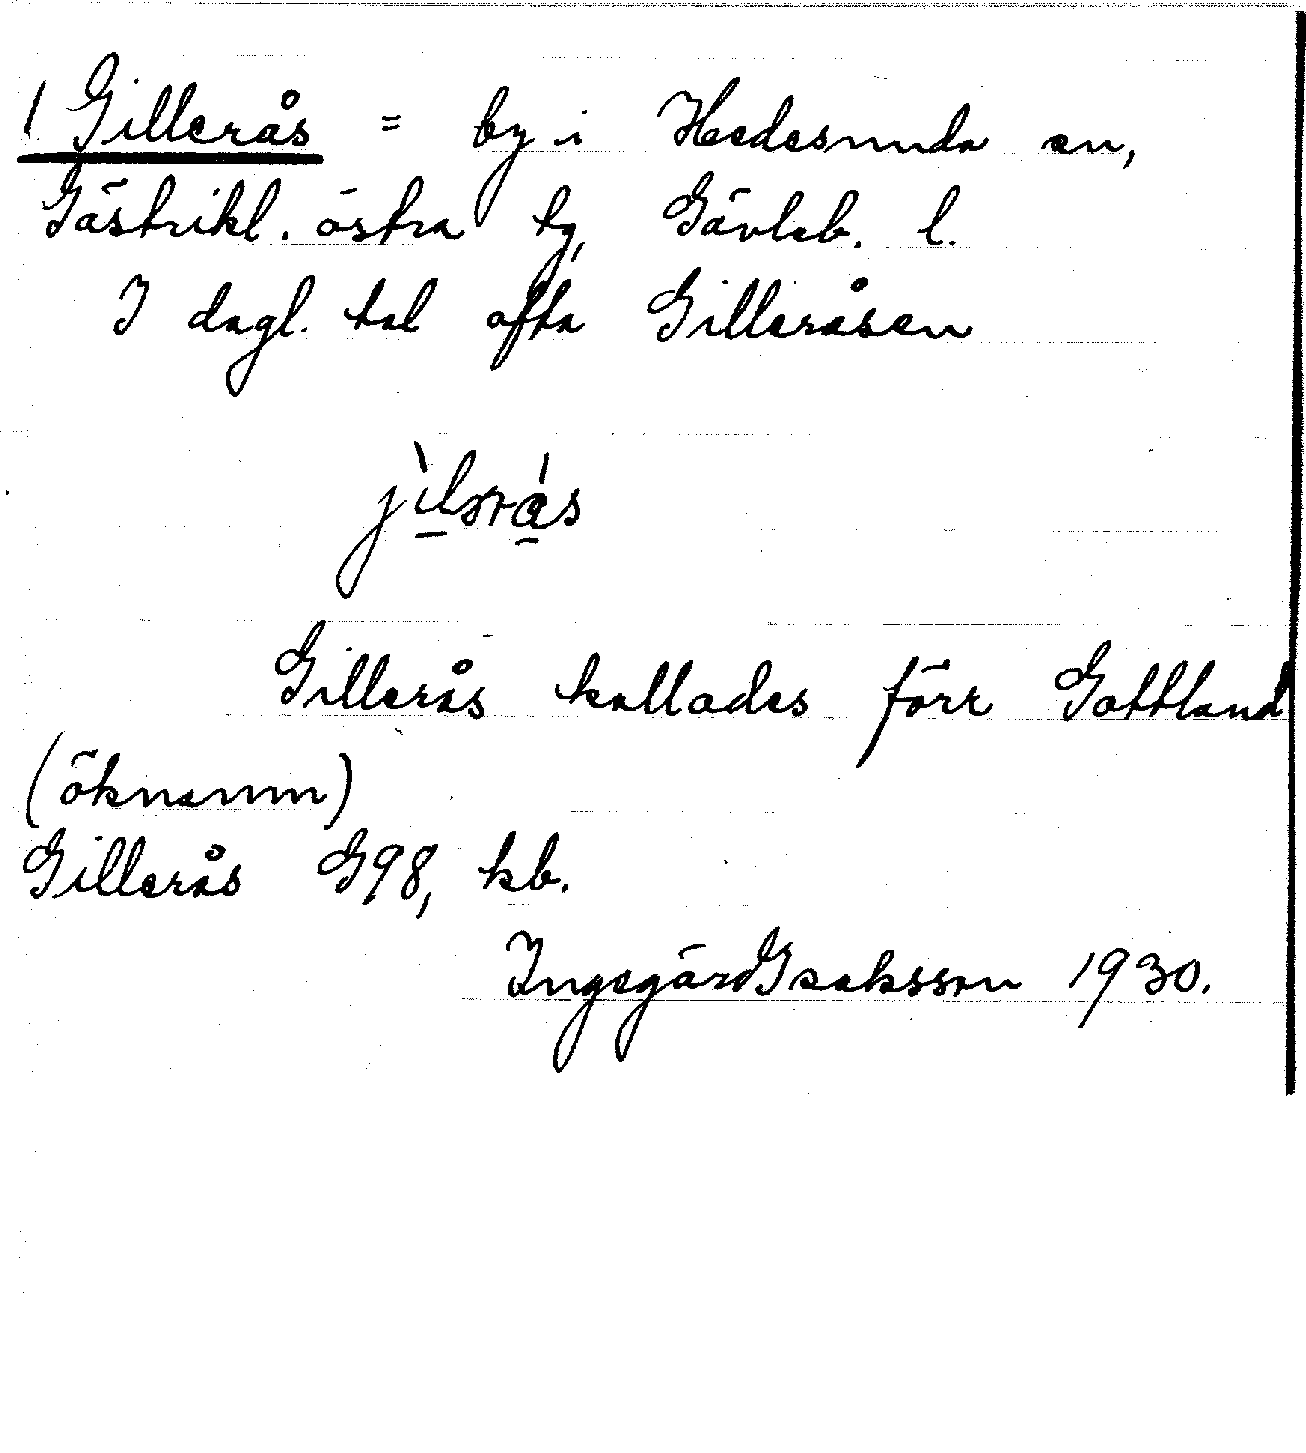 1 Gillerås = by i Hedesunda sn,
Gästrikl. östra tg, Gävleb. l.
I dagl. tal ofta Gilleråsen
Gillerås kallades förr Gottland
(öknamn)
Gillerås G98, kb.
Ingegärd Isaksson 1930.